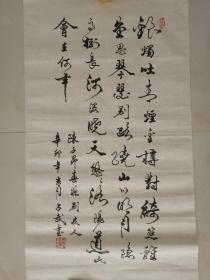 銀燭吐青煙金樽對綺筵離
堂思琴瑟別路繞山川明月隱
高樹長河沒曉天悠悠洛陽道此
會在何年
陳子昂春夜別友人
辛卯年月子武書